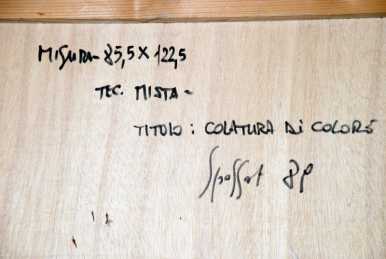 MISURA- 85,5 X 122,5
TEC. MISTA -
TITOLO : COLATURA DI COLORE